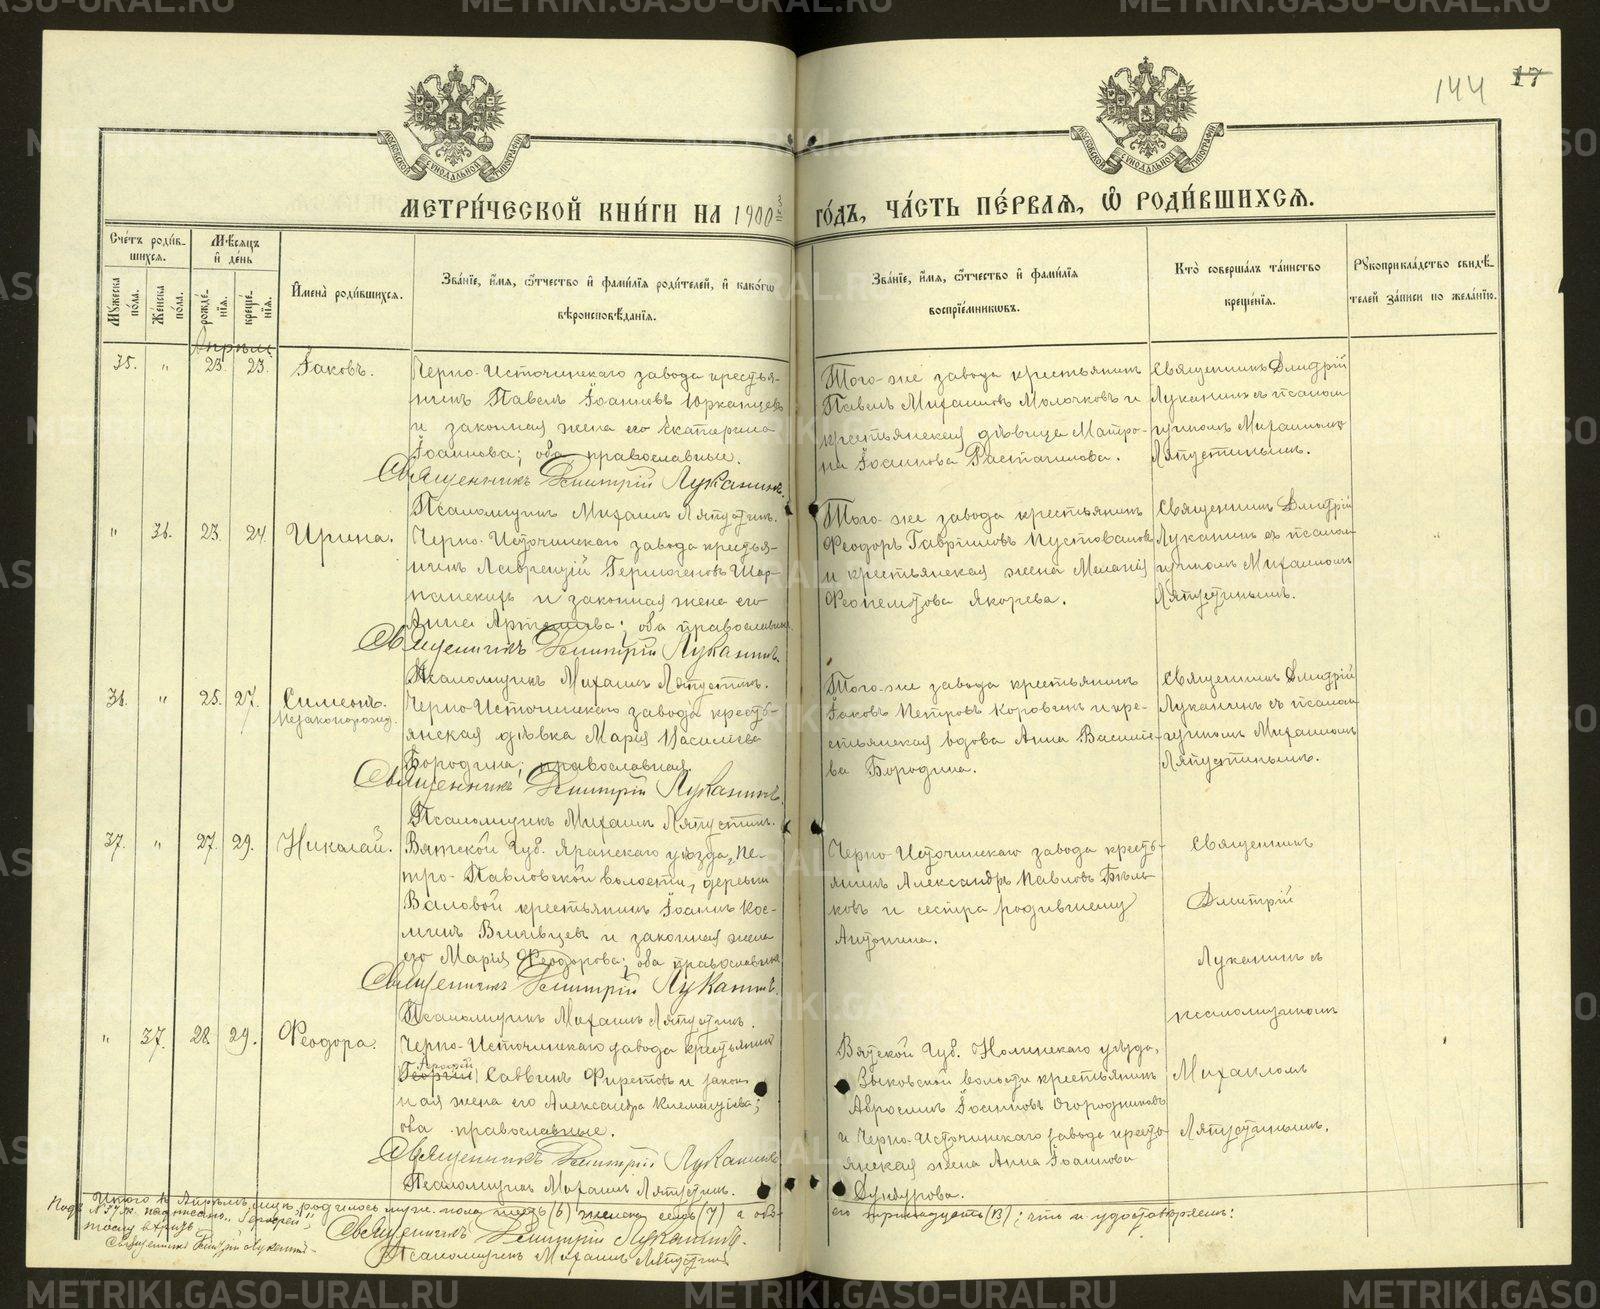 METRIKI.GASO-URAL.RU
144 17
МОСКОВСКОЙ СѴНОДАЛЬНОЙ ТИПОГРАФІИ
МОСКОВСКОЙ СѴНОДАЛЬНОЙ ТИПОГРАФІИ
МЕТРИ́ЧЕСКОЙ КНИ́ГИ НА 1900й ГО́ДЪ, ЧА́СТЬ ПЕ́РВАЯ, Ѡ РОДИ́ВШИХСЯ.
Сче́тъ роди́в-
шихся.
Му́жеска по́ла.
Же́нска по́ла.
Мѣ́сяцъ
и҆ де́нь
рожде́-
нїя.
креще́-
нїя.
И҆мена̀ роди́вшихся.
Зва́нїе, и҆́мя, ѻ҆́тчество и҆ фами́лїя роди́телей, и҆ како́гѡ
вѣроисповѣ́данїя.
Зва́нїе, и҆́мя, ѻ҆́тчество и҆ фами́лїя
воспрїе́мникѡвъ.
Кто̀ соверша́лъ та́инство
креще́нїя.
Рꙋкоприкла́дство свидѣ́-
телей за́писи по жела́нїю.
Апрѣль
35. " 23. 23. Іаковъ.
Черно-Источинскаго завода крестья-
нинъ Павелъ Іоанновъ Юрканцевъ
и законная жена его Екатерина
Іоаннова; оба православные.
Священникъ Димитрій Луканинъ.
Псаломщикъ Михаилъ Ляпустинъ.
Того-же завода крестьянинъ
Павелъ Михаиловъ Молочковъ и
крестьянская дѣвица Матро-
на Іоаннова
Священникъ Дмитрій
Луканинъ съ псалом
щикомъ Михаиломъ
Ляпустинымъ.
" 36. 23. 24. Ирина.
Черно-Источинскаго завода крестья-
нинъ Лаврентій Гермогеновъ
и законная жена его
Анна; оба православные.
Священникъ Димитрій Луканинъ.
Псаломщикъ Михаилъ Ляпустинъ.
Того-же завода крестьянинъ
Феодоръ Гавриловъ Пустоваловъ
и крестьянская жена Меланія
Феопемптова Якорева.
Священникъ Дмитрій
Луканинъ съ псалом
щикомъ Михаиломъ
Ляпустинымъ.
36. " 25. 27. Симеонъ.
Незаконорожд.
Черно-Источинскаго завода кресть-
янская дѣвка Марія Васильева
Бородина; православная.
Священникъ Димитрій Луканинъ.
Псаломщикъ Михаилъ Ляпустинъ.
Того-же завода крестьянинъ
Іаковъ Петровъ Коровинъ и кре-
стьянская вдова Анна Василь-
ва Бородина.
Священникъ Дмитрій
Луканинъ съ псалом
щикомъ Михаиломъ
Ляпустинымъ.
37. " 27. 29. Николай.
Вятской Губ. Яранскаго уѣзда, Пе-
тро-Павловской волости, деревни
Валовой крестьянинъ Іоаннъ Кос-
минъ и законная жена
его Марія Феодорова; оба православные
Священникъ Димитрій Луканинъ.
Псаломщикъ Михаилъ Ляпустинъ.
Черно-Источинскаго завода кресть-
янинъ Александръ Павловъ Бѣль-
ковъ и сестра родившему
Антонина.
Священникъ
Дмитрій
Луканинъ съ
псаломщикомъ
Михаиломъ
Ляпустинымъ.
" 37. 28. 29. Феодора.
Черно-Источинскаго завода крестьянинъ
Георгій Саввинъ и закон
ная жена его Александра Климентова;
оба православные.
Священникъ Димитрій Луканинъ
Псаломщикъ Михаилъ Ляпустинъ.
Вятской Губ. Нолинскаго уѣзда,
Зыковской волости крестьянинъ
Авросимъ Іоанновъ Огородниковъ
и Черно-Источинскаго завода кресть-
янская жена Анна Іоаннова
Итого въ Апрѣлѣ мцѣ родилось муж. пола шесть (6) женска семь (7) а обо-
его тринадцать (13); что и удостовѣряемъ:
Священникъ Димитрій Луканинъ.
Псаломщикъ Михаилъ Ляпустинъ
Подъ № 37 ж. надписано
Священникъ Димитрій Луканинъ